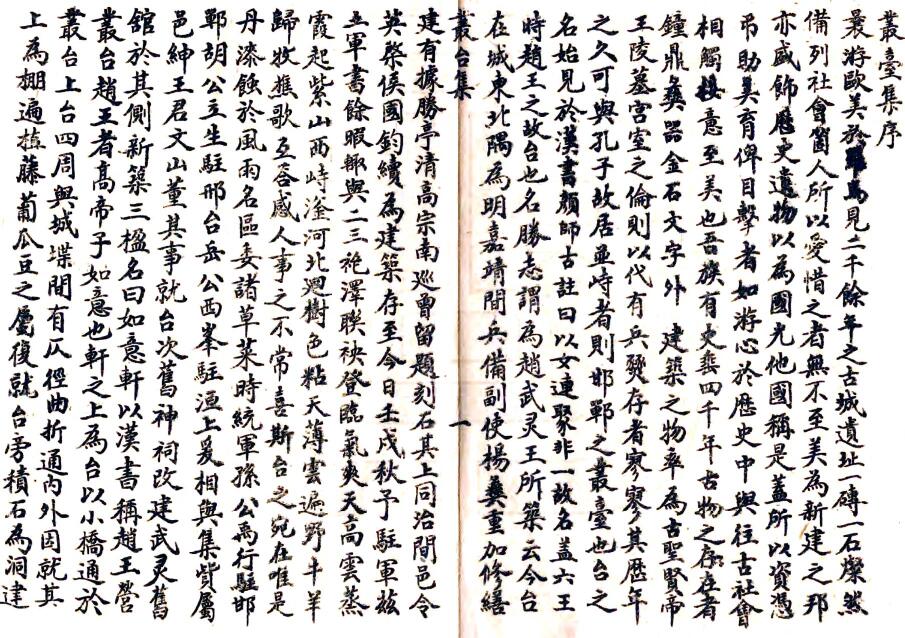 叢臺集序
曩游歐美於羅馬見二千餘年之古城遺址一磚一石燦然
備列社會箇人所以愛惜之者無不至美為新建之邦
亦盛飾歷史遺物以為國光他國稱是蓋所以資憑
弔助美育俾目擊者如游心於歷史中與往古社會
相觸接意至美也吾族有史垂四千年古物之存在者
鐘鼎彝器金石文字外 建築之物率為古聖賢帝
王陵墓宮室之倫則以代有兵燹存者寥寥其歷年
之久可與孔子故居並峙者則邯鄲之叢臺也台之
名始見於漢書顏師古註曰以女連聚非一故名蓋六王
時趙王之故台也名勝志謂為趙武灵王所築云今台
在城東北隅為明嘉靖間兵備副使楊彝重加修繕
叢台集 一
建有據勝亭清高宗南巡曾留題刻石其上同治間邑令
英棨侯國鈞續為建築存至今日壬戌秋予駐軍茲
土軍書餘暇輒與二三袍澤聯袂登臨氣爽天高雲蒸
霞起紫山西峙滏河北迴樹色粘天薄雲遍野牛羊
歸牧樵歌互答感人事之不常喜斯台之宛在唯是
丹漆蝕於風雨名區委諸草萊時統軍孫公禹行駐邯
鄲胡公立生駐邢台岳公西峯駐洹上爰相與集貲屬
邑紳王君文山董其事就台次舊神祠改建武灵舊
舘於其側新築三楹名曰如意軒以漢書稱趙王營
叢台趙王者高帝子如意也軒之上為台以小橋通於
叢台上台四周與城堞間有仄徑曲折通內外因就其
上為棚遍植藤葡瓜豆之屬復就台旁積石為洞建